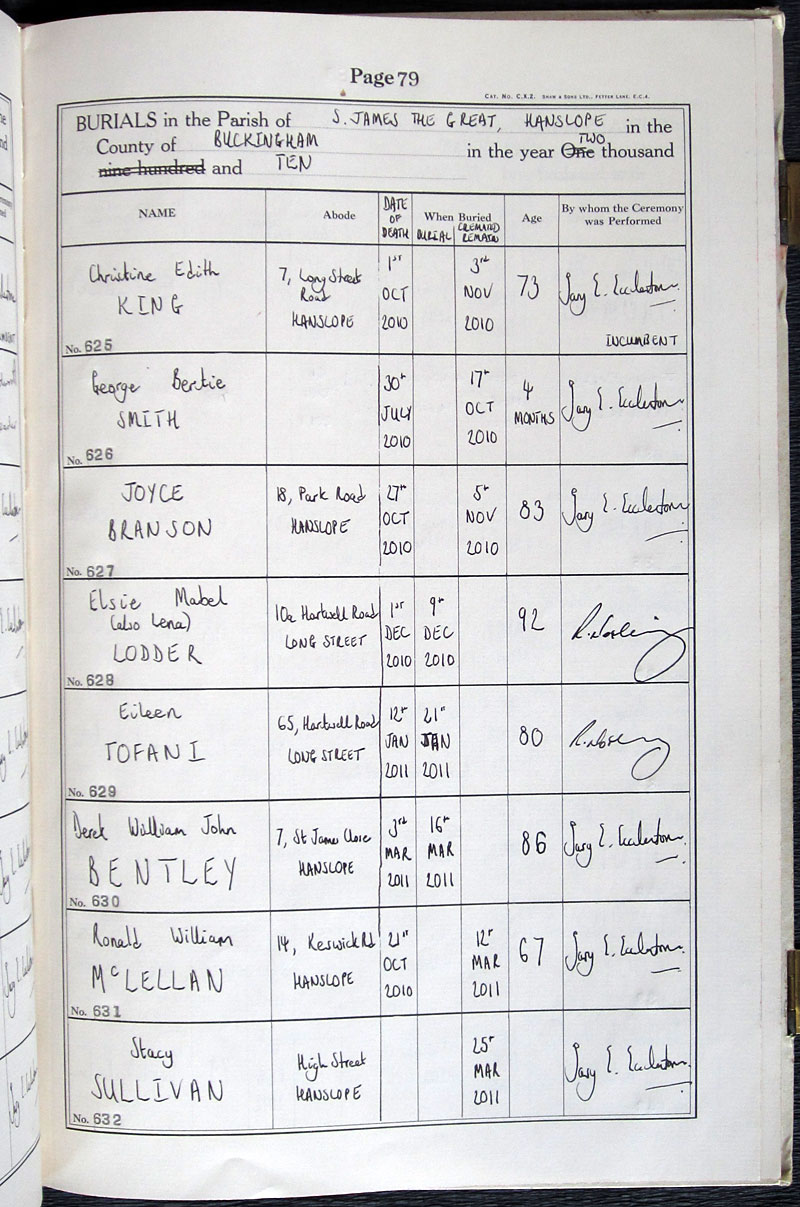 Page 79
CAT. No. C.X.2. SHAW & SONS LTD., FETTER LANE, E.C.4.
BURIALS in the Parish of S. JAMES THE GREAT, HANSLOPE in the
County of BUCKINGHAM in the year One TWO thousand
nine hundred and TEN
NAME Abode DATE OF DEATH When Buried BURIAL CREMATED REMAINS Age By whom the Ceremony was Performed
Christine Edith
KING
No. 625
7, Long Street
Road
HANSLOPE
1st
OCT
2010
3rd
NOV
2010
73
Gary E. Ecclestone
INCUMBENT
George Bertie
SMITH
No. 626
30th
JULY
2010
17th
OCT
2010
4
MONTHS
Gary E. Ecclestone
JOYCE
BRANSON
No. 627
18, Park Road
HANSLOPE
27th
OCT
2010
5th
NOV
2010
83
Gary E. Ecclestone
Elsie Mabel
(also Lena)
LODDER
No. 628
10a Hartwell Road
LONG STREET
1st
DEC
2010
9th
DEC
2010
92
Eileen
TOFANI
No. 629
65, Hartwell Road
LONG STREET
12th
JAN
2011
21st
JAN
2011
80
Derek William John
BENTLEY
No. 630
7, St James Close
HANSLOPE
3rd
MAR
2011
16th
MAR
2011
86
Gary E. Ecclestone
Ronald William
McLELLAN
No. 631
14, Keswick Rd
HANSLOPE
21st
OCT
2010
12th
MAR
2011
67
Gary E. Ecclestone
Stacy
SULLIVAN
No. 632
High Street
HANSLOPE
25th
MAR
2011
Gary E. Ecclestone